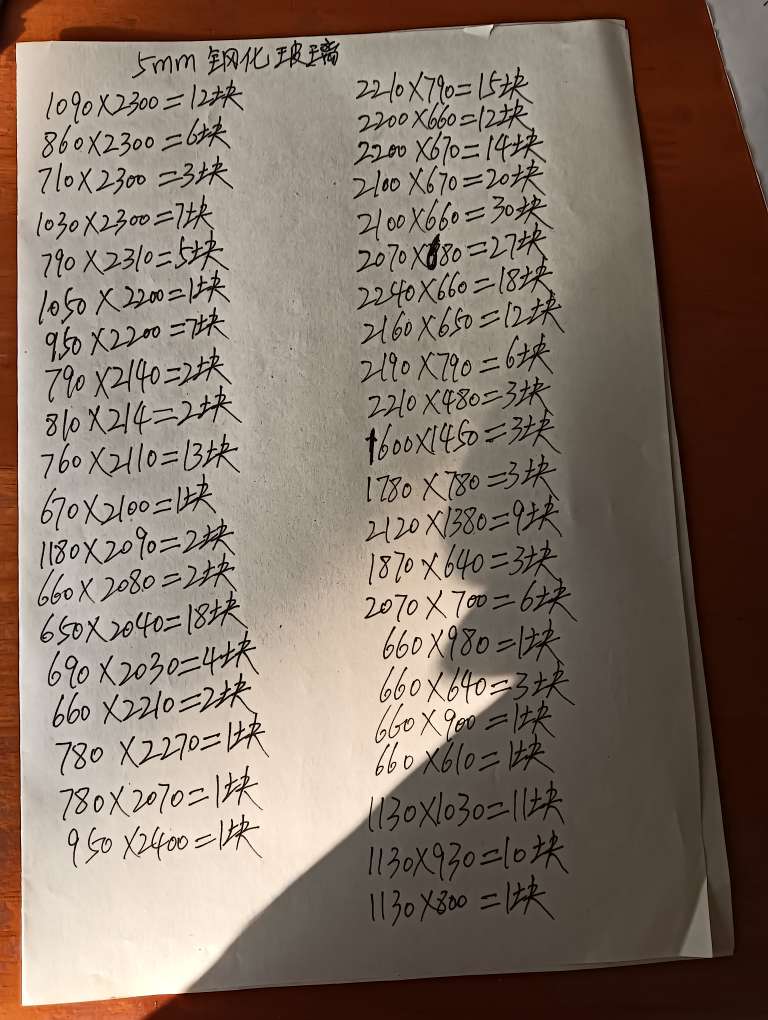 5mm 钢化玻璃
1090×2300=12块
860×2300=6块
710×2300=3块
1030×2300=7块
790×2310=5块
1050×2200=1块
950×2200=7块
790×2140=2块
810×214=2块
760×2110=13块
670×2100=1块
1180×2090=2块
660×2080=2块
650×2040=18块
690×2030=4块
660×2210=2块
780×2270=1块
780×2070=1块
950×2400=1块
2210×790=15块
2200×660=12块
2200×670=14块
2100×670=20块
2100×660=30块
2070×680=27块
2240×660=18块
2160×650=12块
2190×790=6块
2210×480=3块
1600×1450=3块
1780×780=3块
2120×1380=9块
1870×640=3块
2070×700=6块
660×980=1块
660×640=3块
660×900=1块
660×610=1块
1130×1030=11块
1130×930=10块
1130×800=1块